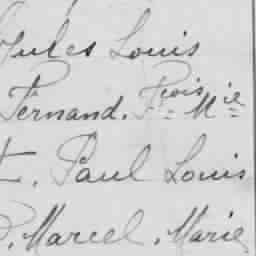 Jules Louis
Fernand. Fçois = Mie =
L. Paul Louis
P. Marcel. Marie